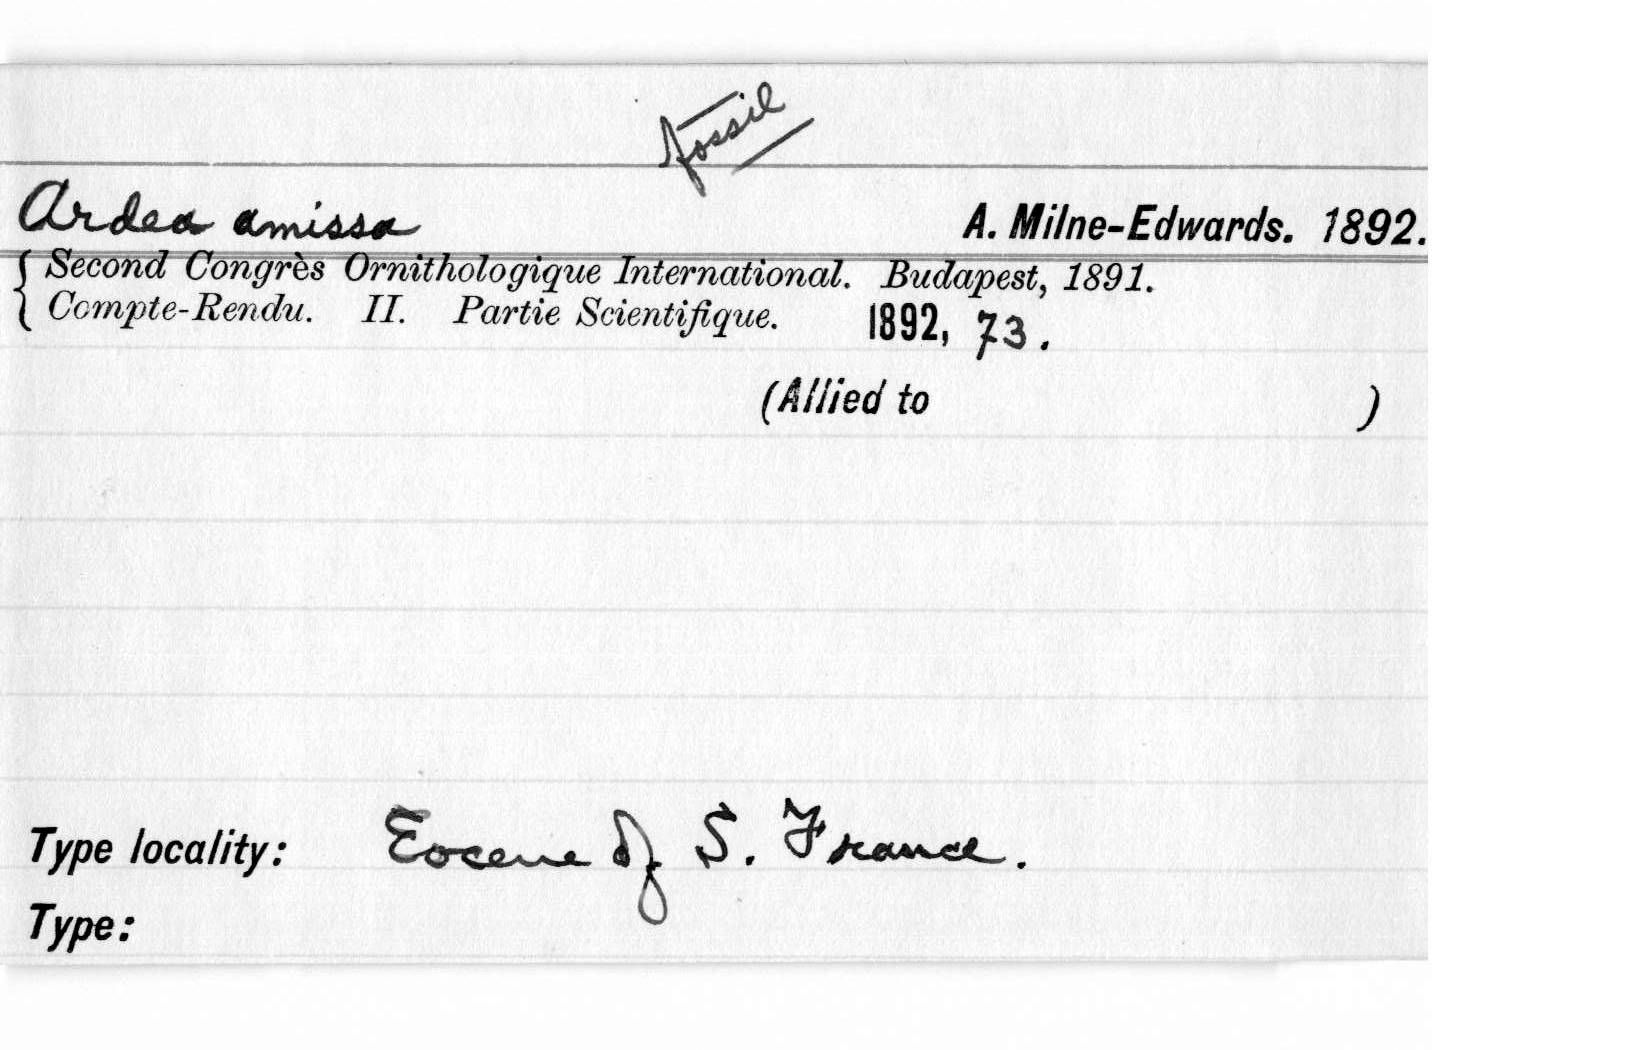 fossil
Ardea amissa A. Milne-Edwards. 1892.
{ Second Congrès Ornithologique International. Budapest, 1891.
Compte-Rendu. II. Partie Scientifique. 1892, 73.
(Allied to )
Type locality: Eocene of S. France.
Type: